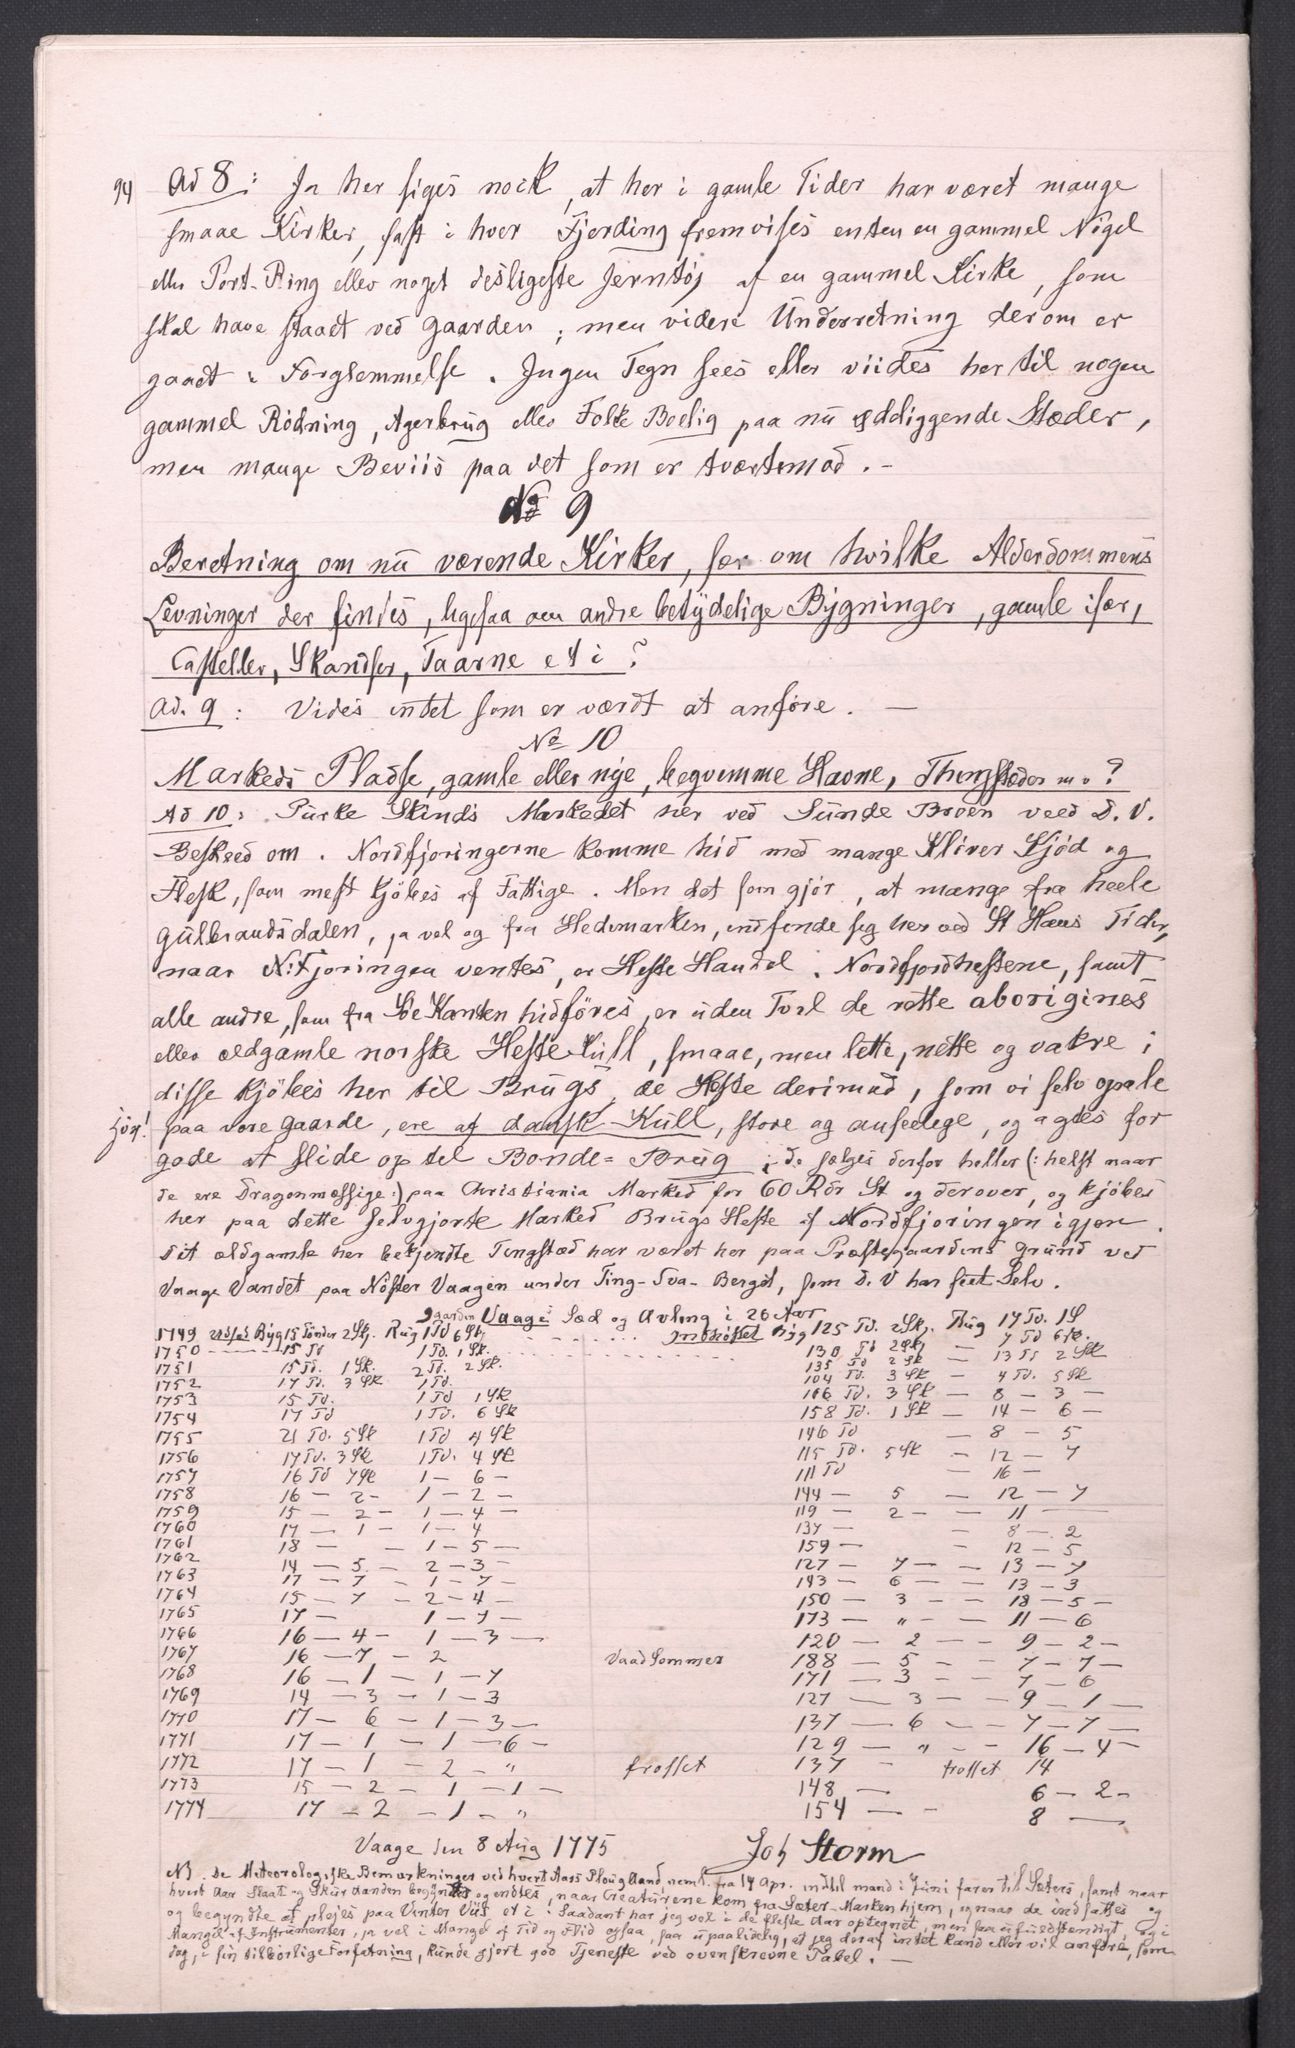 94
Ad 8: Ja her siges nock, at her i gamle Tider har været mange
smaae Kirker, fast i hver Fjerding fremvises enten en gammel Nögel
eller Port-Ring eller noget desligeste Jerntöj af en gammel Kirke, som
skal have staaet ved gaarden; men videre Underretning derom er
gaaet i Forglemmelse. Ingen Tegn sees eller viides her til nogen
gammel Rödning, Agerbrug eller Folke Boelig paa nu ödeliggende Stæder,
men mange Beviis paa det som er tvertimod. -
No 9
Beretning om nu værende Kirker, sær om hvilke Alderdommens
Levninger der findes, ligesaa om andre betydelige Bygninger, gamle især,
Casteller, Skandser, Taarne et i?
Ad. 9: Vides intet som er værdt at anföre. —
No 10
Markeds Pladse, gamle eller nye, beqvemme Havne, Thingstæder m.?
Ad 10: Purke Skinds Markedet her ved Sunde Broen veed D. V.
Beskeed om. Nordfjoringerne komme hid med mange Kliver Kjöd og
Flesk, som mest kjöbes af Fattige. Men det som gjör, at mange fra heele
Gulbrandsdalen, ja vel og fra Hedemarken, indfinde sig her ved St Hans Tider,
naar N:Fjoringen ventes, er Heste Handel. Nordfjordhestene, samt
alle andre, som fra Söe Kanten hidföres, er uden Tvil de rette aborigines
eller ældgamle norske Heste Kull, smaae, men lette, nette og vakre;
disse kjöbes her til Brugs, de Heste derimod, som vi selv opale
jöx!
paa vore gaarde, ere af dansk Kull, store og anseelege, og agtes for
gode at slide op til Bonde= Brug; de sælges derfor heller (: helst naar
de ere Dragonmæssige:) paa Christiania Marked for 60 Rdr St og derover, og kjöbes
her paa dette selvgjorte Marked Brugs Heste af Nordfjoringen igjen.
Dit ældgamle her bekjendte Tingstæd har været her paa Præstegaardens grund ved
Vaage Vandet paa Nöster Vaagen under Ting-Sva-Berget, som D. V har seet selv.
gaarden Vaages Sæd og Avling i 26 Aar
1749 Udsæd Byg 15 Tönder 2 Sk. Rug 1 Td 6 Sk. Indhöstet Byg 125 Td. 2 Sk. Rug 17 Td. 1 S
1750 15 Td 1 Td. 1 Sk. 130 Td 2 Sk — 7 Td 6 Sk.
1751 15 Td. 1 Sk. 2 Td. 2 Sk. 135 Td 2 Sk — 13 Td 2 Sk
1752 17 Td. 3 Sk 1 Td. 104 Td. 3 Sk — 4 Td. 5 Sk
1753 15 Td. 1 Td 1 Sk 166 Td. 3 Sk — 8 — 3 —
1754 17 Td 1 Td. 6 Sk 158 Td. 1 Sk — 14 — 6 —
1755 21 Td. 5 Sk 1 Td 4 Sk 146 Td — 8 — 5
1756 17 Td. 3 Sk 1 Td. 4 Sk 115 Td. 5 Sk — 12 — 7
1757 16 Td 7 Sk 1 — 6 — 111 Td — 16 —
1758 16 — 2 — 1 — 2 — 144 — 5 — 12 — 7
1759 15 — 2 — 1 — 4 — 119 — 2 — — 11 —
1760 17 — 1 — 1 — 4 137 — — 8 — 2
1761 18 — — 1 — 5 — 159 — — 12 — 5
1762 14 — 5 — 2 — 3 — 127 — 7 — — 13 — 7
1763 17 — 7 — 1 — 7 — 143 — 6 — — 13 — 3
1764 15 — 7 — 2 — 4 — 150 — 3 — — 18 — 5 —
1765 17 — 1 — 7 — 173 — „ — — 11 — 6
1766 16 — 4 — 1 — 3 — 120 — 2 — — 9 — 2 —
1767 16 — 7 — 2 Vaad Sommer 188 — 5 — — 7 — 7 —
1768 16 — 1 — 1 — 7 171 — 3 — — 7 — 6
1769 14 — 3 — 1 — 3 127 — 3 — — 9 — 1 —
1770 17 — 6 — 1 — 3 — 137 — 6 — — 7 — 7 —
1771 17 — 1 — 1 — 6 — 129 — „ — — 16 — 4 —
1772 17 — 1 — 2 — „ frosset 137 — frosset 14
1773 15 — 2 — 1 — 1 — 148 — 6 — 2 —
1774 17 — 2 — 1 — „ 154 — — 8 —
Vaage den 8 Aug 1775 Joh Storm
NB. De Meteorologiske Bemærkninger ved hvert Aars Plougland, neml. fra 14 Apr. indtil mand i Juni farer til Sæters, samt naar
hvert Aar Slaat og Skur aanden begyndtes og endtes, naar Creaturene kom fra Sæter-Marken hjem, og naar de indsattes og
og begyndte at plejes paa Vinter Viis et i. Saadant har jeg vel i de fleste Aar optegnet, men saa ufuldstendigt, og i
Mangel af Instrumenter, ja vel i Mangel af Tid og Flid ogsaa, saa upaalidelig, at jeg deraf intet kand eller vil anföre, som
dog, i sin tilbörlige Forfatning, kunde gjort god Tjeneste ved ovenskrevne Tabel. —